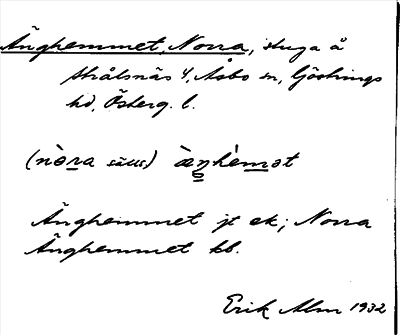 Änghemmet, Norra, stuga å
Strålsnäs 4, Åsbo sn, Göstrings
hd, Österg. l.
(nǝ̀ra säll) æ̀ŋhèmǝt
Änghemmet jt ek; Norra
Änghemmet kb.
Erik Alm 1932